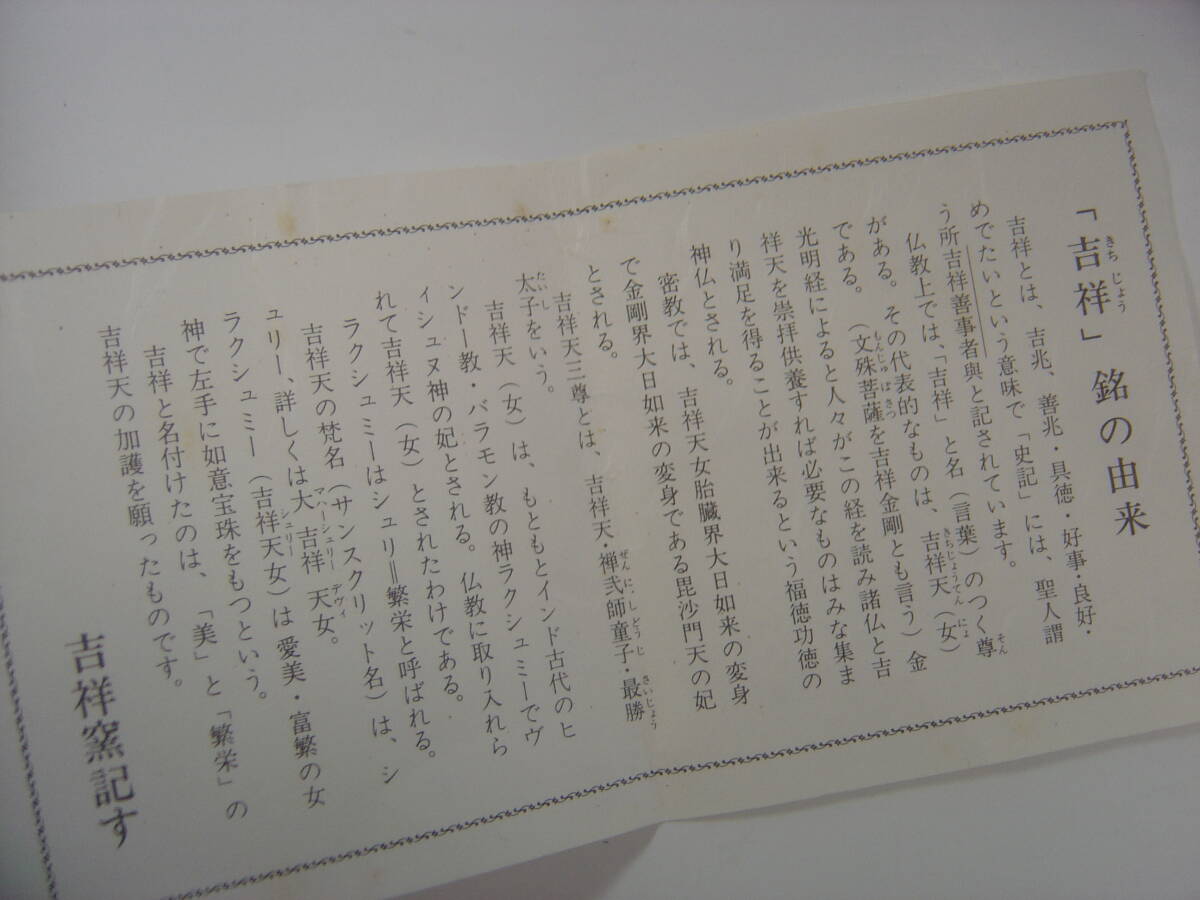 「吉祥」銘の由来
吉祥とは、吉兆、善兆・具徳・好事・良好・
めでたいという意味で「史記」には、聖人謂
う所吉祥善事者與と記されています。
仏教上では、「吉祥」と名(言葉)のつく尊
がある。その代表的なものは、吉祥天(女)
である。(文殊菩薩を吉祥金剛とも言う)金
光明経によると人々がこの経を読み諸仏と吉
祥天を崇拝供養すれば必要なものはみな集ま
り満足を得ることが出来るという福徳功徳の
神仏とされる。
密教では、吉祥天女胎臓界大日如来の変身
で金剛界大日如来の変身である毘沙門天の妃
とされる。
吉祥天三尊とは、吉祥天・禅弐師童子・最勝
太子をいう。
吉祥天(女)は、もともとインド古代のヒ
ンドー教・バラモン教の神ラクシュミーでヴ
ィシュヌ神の妃とされる。仏教に取り入れら
れて吉祥天(女)とされたわけである。
ラクシュミーはシュリ=繁栄と呼ばれる。
吉祥天の梵名(サンスクリット名)は、シ
ュリー、詳しくは大吉祥天女。
ラクシュミー(吉祥天女)は愛美・富繁の女
神で左手に如意宝珠をもつという。
吉祥と名付けたのは、「美」と「繁栄」の
吉祥天の加護を願ったものです。
吉祥窯記す